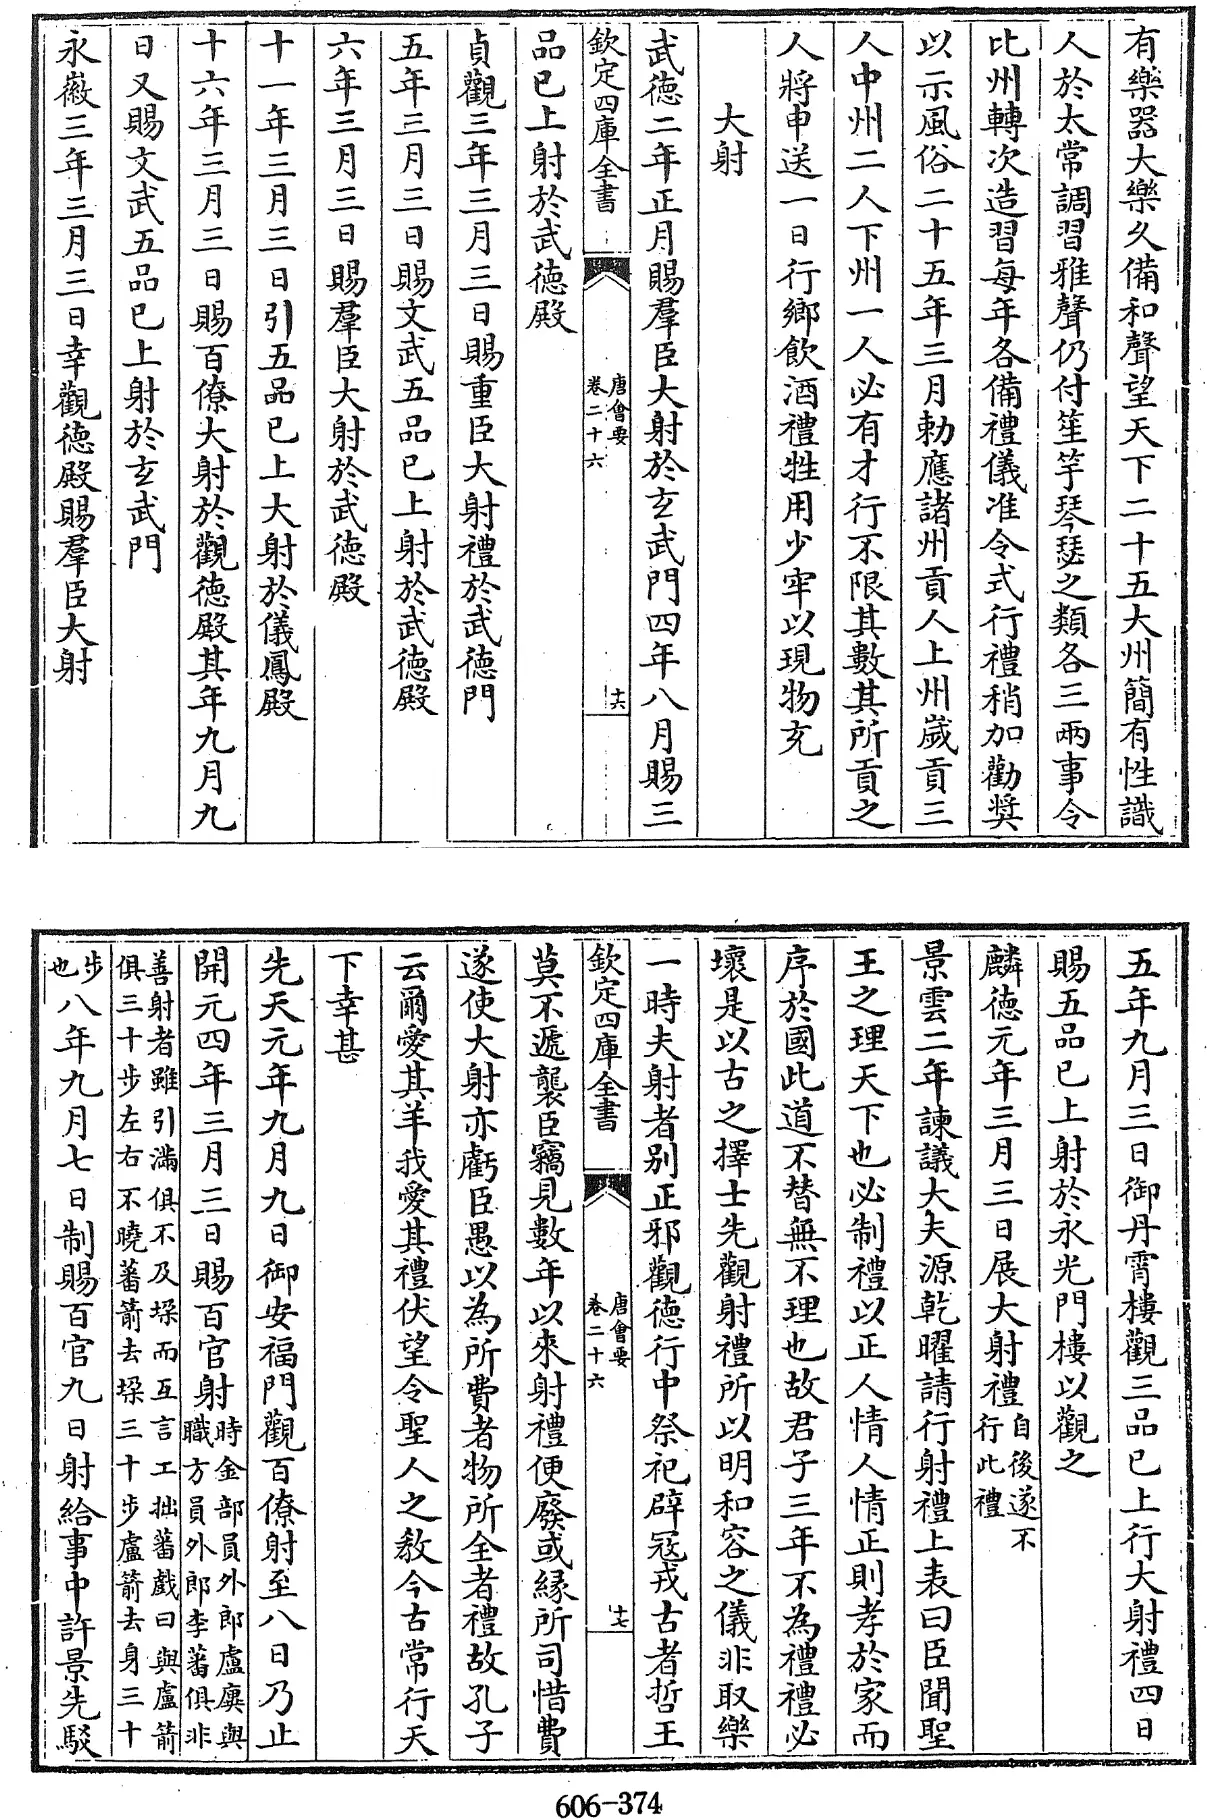 有樂器大樂久備和聲望天下二十五大州簡有性識
人於太常調習雅聲仍付笙竽琴瑟之類各三兩事令
比州轉次造習每年各備禮儀准令式行禮稍加勸奬
以示風俗二十五年三月勅應諸州貢人上州歲貢三
人中州二人下州一人必有才行不限其數其所貢之
人將申送一日行鄉飲酒禮牲用少牢以現物充
大射
武德二年正月賜羣臣大射於玄武門四年八月賜三
欽定四庫全書
唐會要
卷二十六
十六
品已上射於武德殿
貞觀三年三月三日賜重臣大射禮於武德門
五年三月三日賜文武五品已上射於武德殿
六年三月三日賜羣臣大射於武德殿
十一年三月三日引五品已上大射於儀鳳殿
十六年三月三日賜百僚大射於觀德殿其年九月九
日又賜文武五品已上射於玄武門
永徽三年三月三日幸觀德殿賜羣臣大射
五年九月三日御丹霄樓觀三品已上行大射禮四日
賜五品已上射於永光門樓以觀之
麟德元年三月三日展大射禮自後遂不行此禮
景雲二年諫議大夫源乾曜請行射禮上表曰臣聞聖
王之理天下也必制禮以正人情人情正則孝於家而
序於國此道不替無不理也故君子三年不為禮禮必
壞是以古之擇士先觀射禮所以明和容之儀非取樂
一時夫射者别正邪觀德行中祭祀辟冦戎古者哲王
欽定四庫全書
唐會要
卷二十六
十七
莫不遞襲臣竊見數年以來射禮便廢或緣所司惜費
遂使大射亦虧臣愚以為所費者物所全者禮故孔子
云爾愛其羊我愛其禮伏望令聖人之教今古常行天
下幸甚
先天元年九月九日御安福門觀百僚射至八日乃止
開元四年三月三日賜百官射時金部員外郎盧廙與職方員外郎李蕃俱非
善射者雖引滿俱不及垜而互言工拙蕃戲曰與盧箭俱三十步左右不曉蕃箭去垜三十步盧箭去身三十
步也八年九月七日制賜百官九日射給事中許景先駁
606-374